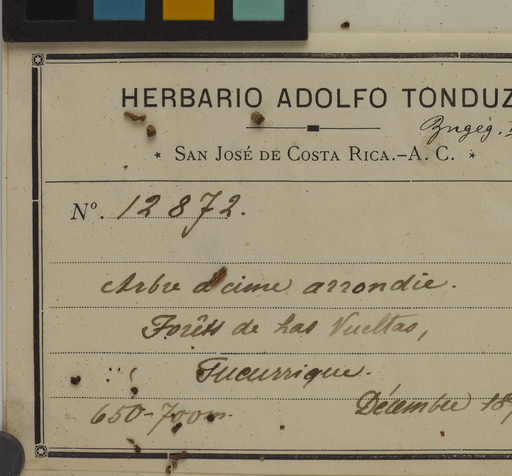 HERBARIO ADOLFO TONDUZ
Zngeg.
* SAN JOSÉ DE COSTA RICA.–A. C. *
Nº. 12872.
Arbre à cime arrondie.
Forêts de Las Vueltas,
Tucurrique.
650-700m. Décembre 18